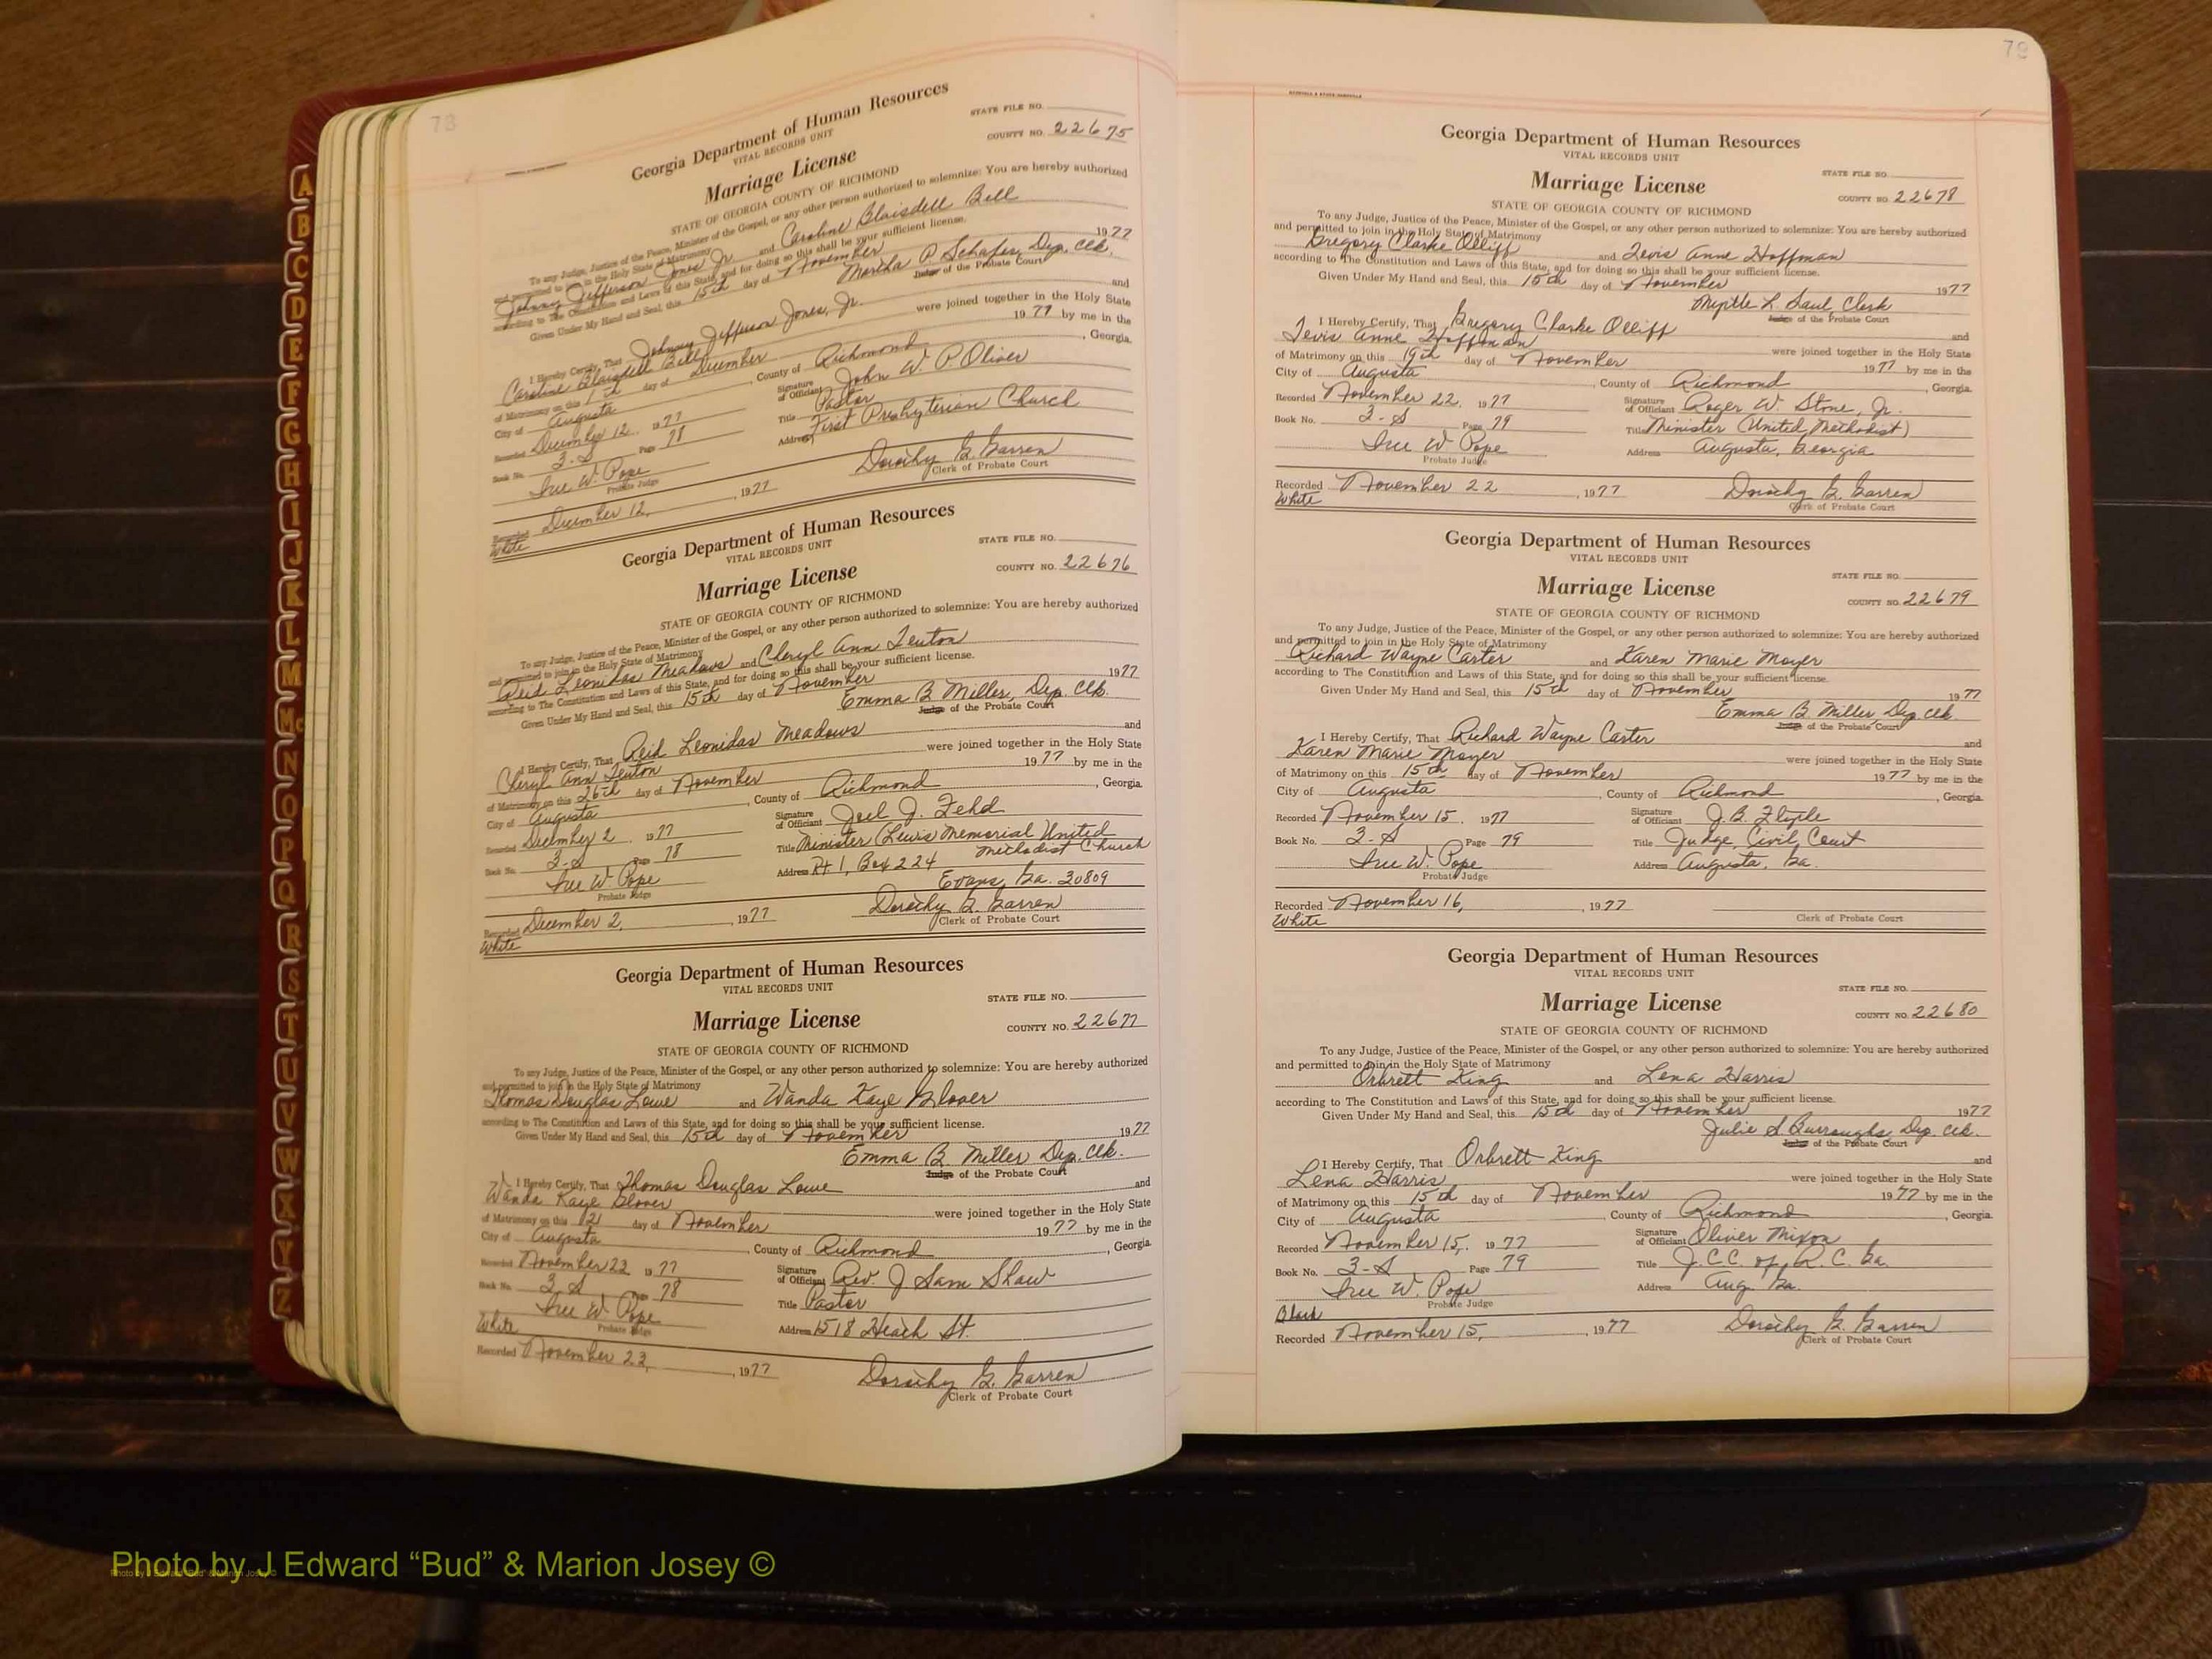 A
B
C
D
E
F
G
H
I
J
K
L
M
Mc
N
O
P
Q
R
S
T
U
V
W
X
Y
Z
78
Georgia Department of Human Resources
VITAL RECORDS UNIT
STATE FILE NO.
Marriage License
COUNTY NO. 22675
STATE OF GEORGIA COUNTY OF RICHMOND
To any Judge, Justice of the Peace, Minister of the Gospel, or any other person authorized to solemnize: You are hereby authorized
and permitted to join in the Holy State of Matrimony
Johnny Jefferson Jones Jr. and Caroline Blaisdell Bell
according to The Constitution and Laws of this State, and for doing so this shall be your sufficient license.
Given Under My Hand and Seal, this 15th day of November 1977
Martha P. Schafer, Dep. Clk.
Judge of the Probate Court
I Hereby Certify, That Johnny Jefferson Jones, Jr. and
Caroline Blaisdell Bell were joined together in the Holy State
of Matrimony on this day of December 1977 by me in the
City of Augusta, County of Richmond, Georgia.
Recorded December 12, 1977 Signature of Officiant John W. P. Oliver
Book No. 3-S Page 78 Title Pastor
Address First Presbyterian Church
Iree W. Pope
Probate Judge
Dorothy G. Garren
Clerk of Probate Court
Recorded December 12, 1977
White
Georgia Department of Human Resources
VITAL RECORDS UNIT
STATE FILE NO.
Marriage License
COUNTY NO. 22676
STATE OF GEORGIA COUNTY OF RICHMOND
To any Judge, Justice of the Peace, Minister of the Gospel, or any other person authorized to solemnize: You are hereby authorized
and permitted to join in the Holy State of Matrimony
Reid Leonidas Meadows and Cheryl Ann Teuton
according to The Constitution and Laws of this State, and for doing so this shall be your sufficient license.
Given Under My Hand and Seal, this 15th day of November 1977
Emma B. Miller, Dep. Clk.
Judge of the Probate Court
I Hereby Certify, That Reid Leonidas Meadows and
Cheryl Ann Teuton were joined together in the Holy State
of Matrimony on this 26th day of November 1977 by me in the
City of Augusta, County of Richmond, Georgia.
Recorded December 2, 1977 Signature of Officiant Joel J. Fehd
Book No. 3-S Page 78 Title Minister (Lewis Memorial United
Methodist Church
Iree W. Pope Address Rt. 1, Box 224
Probate Judge Evans, Ga. 30809
Dorothy G. Garren
Clerk of Probate Court
Recorded December 2, 1977
White
Georgia Department of Human Resources
VITAL RECORDS UNIT
STATE FILE NO.
Marriage License
COUNTY NO. 22677
STATE OF GEORGIA COUNTY OF RICHMOND
To any Judge, Justice of the Peace, Minister of the Gospel, or any other person authorized to solemnize: You are hereby authorized
and permitted to join in the Holy State of Matrimony
Thomas Douglas Lowe and Wanda Kaye Glover
according to The Constitution and Laws of this State, and for doing so this shall be your sufficient license.
Given Under My Hand and Seal, this 15th day of November 1977
Emma B. Miller Dep. Clk.
Judge of the Probate Court
I Hereby Certify, That Thomas Douglas Lowe and
Wanda Kaye Glover were joined together in the Holy State
of Matrimony on this day of November 1977 by me in the
City of Augusta, County of Richmond, Georgia.
Recorded November 22 1977 Signature of Officiant Rev. J Sam Shaw
Book No. 3 S Page 78 Title Pastor
Iree W. Pope
Probate Judge
White
Address 1518 Heath St.
Recorded November 23, 1977
Dorothy G. Garren
Clerk of Probate Court
79
Georgia Department of Human Resources
VITAL RECORDS UNIT
STATE FILE NO.
Marriage License
COUNTY NO. 22678
STATE OF GEORGIA COUNTY OF RICHMOND
To any Judge, Justice of the Peace, Minister of the Gospel, or any other person authorized to solemnize: You are hereby authorized
and permitted to join in the Holy State of Matrimony
Gregory Clarke Olliff and Tevis Anne Hoffman
according to The Constitution and Laws of this State, and for doing so this shall be your sufficient license.
Given Under My Hand and Seal, this 15th day of November 1977
Myrtle L. Saul, Clerk
Judge of the Probate Court
I Hereby Certify, That Gregory Clarke Olliff and
Tevis Anne Hoffman were joined together in the Holy State
of Matrimony on this 19th day of November 1977 by me in the
City of Augusta, County of Richmond, Georgia.
Recorded November 22, 1977 Signature of Officiant Roger W. Stone, Jr.
Book No. 3-S Page 79 Title Minister (United Methodist)
Iree W. Pope Address Augusta, Georgia
Probate Judge
Recorded November 22, 1977 Dorothy G. Garren
White Clerk of Probate Court
Georgia Department of Human Resources
VITAL RECORDS UNIT
STATE FILE NO.
Marriage License
COUNTY NO. 22679
STATE OF GEORGIA COUNTY OF RICHMOND
To any Judge, Justice of the Peace, Minister of the Gospel, or any other person authorized to solemnize: You are hereby authorized
and permitted to join in the Holy State of Matrimony
Richard Wayne Carter and Karen Marie Moyer
according to The Constitution and Laws of this State, and for doing so this shall be your sufficient license.
Given Under My Hand and Seal, this 15th day of November 1977
Emma B. Miller, Dep. Clk.
Judge of the Probate Court
I Hereby Certify, That Richard Wayne Carter and
Karen Marie Moyer were joined together in the Holy State
of Matrimony on this 15th day of November 1977 by me in the
City of Augusta, County of Richmond, Georgia.
Recorded November 15, 1977 Signature of Officiant J. B.
Book No. 3-S Page 79 Title Judge, Civil Court
Iree W. Pope Address Augusta, Ga.
Probate Judge
Recorded November 16, 1977
White Clerk of Probate Court
Georgia Department of Human Resources
VITAL RECORDS UNIT
STATE FILE NO.
Marriage License
COUNTY NO. 22680
STATE OF GEORGIA COUNTY OF RICHMOND
To any Judge, Justice of the Peace, Minister of the Gospel, or any other person authorized to solemnize: You are hereby authorized
and permitted to join in the Holy State of Matrimony
Orbrett King and Lena Harris
according to The Constitution and Laws of this State, and for doing so this shall be your sufficient license.
Given Under My Hand and Seal, this 15th day of November 1977
Julie S. Burroughs Dep. Clk.
Judge of the Probate Court
I Hereby Certify, That Orbrett King and
Lena Harris were joined together in the Holy State
of Matrimony on this 15th day of November 1977 by me in the
City of Augusta, County of Richmond, Georgia.
Recorded November 15, 1977 Signature of Officiant Oliver Mixon
Book No. 3-S Page 79 Title J.C.C. of R.C. Ga.
Iree W. Pope Address Aug. Ga.
Probate Judge
Black
Recorded November 15, 1977 Dorothy G. Garren
Clerk of Probate Court
Photo by J Edward “Bud” & Marion Josey ©